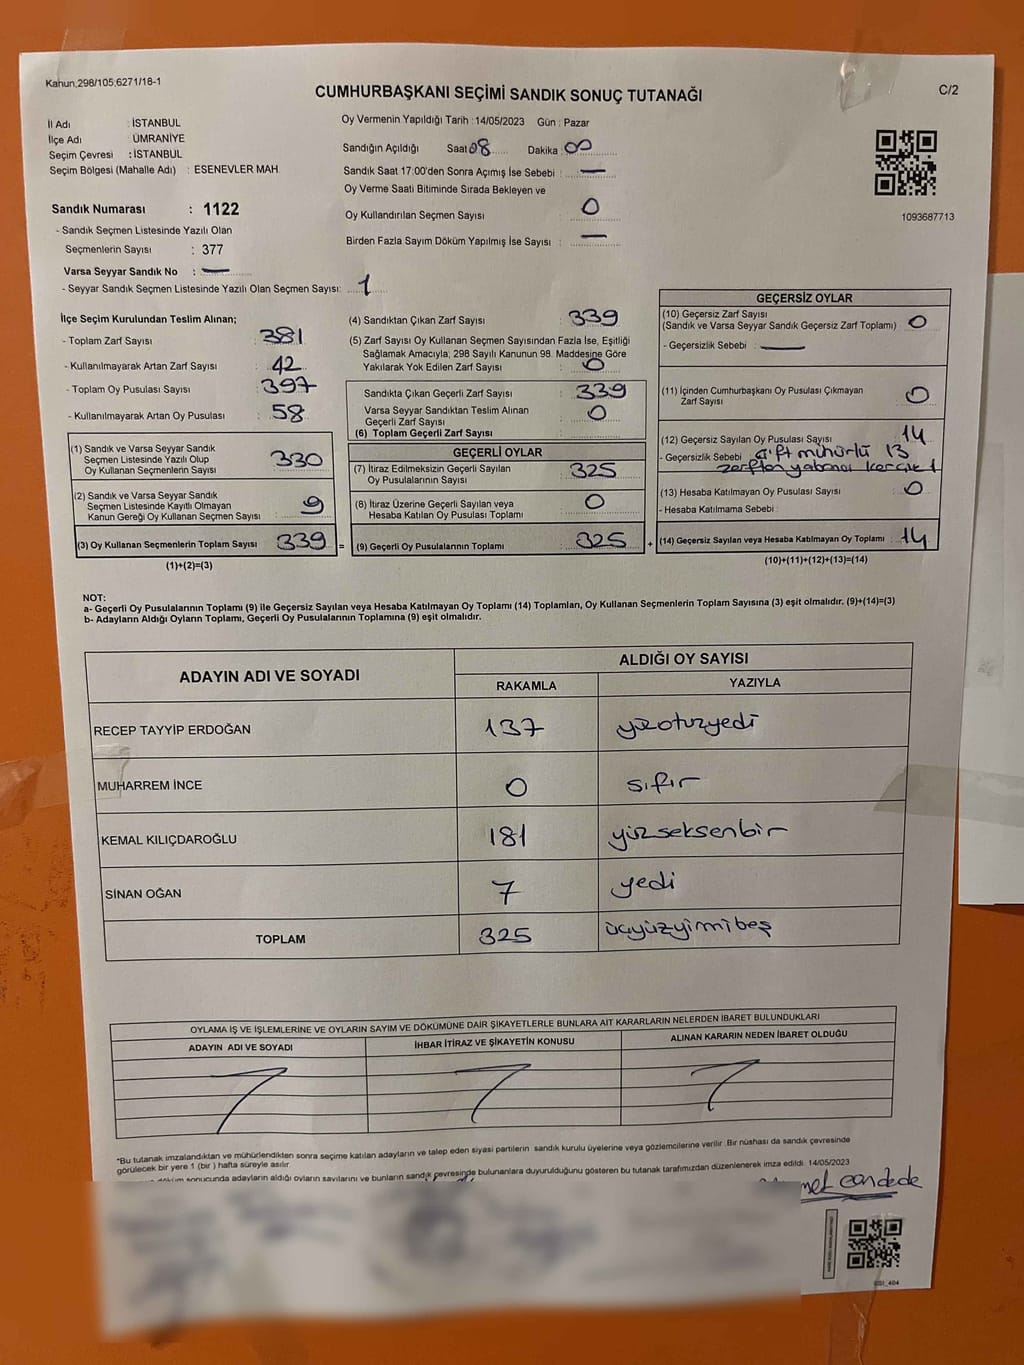 Kanun,298/105,6271/18-1
CUMHURBAŞKANI SEÇİMİ SANDIK SONUÇ TUTANAĞI
C/2
İl Adı : İSTANBUL
İlçe Adı : ÜMRANİYE
Seçim Çevresi : İSTANBUL
Seçim Bölgesi (Mahalle Adı) : ESENEVLER MAH.
Sandık Numarası : 1122
- Sandık Seçmen Listesinde Yazılı Olan
Seçmenlerin Sayısı : 377
Varsa Seyyar Sandık No : —
- Seyyar Sandık Seçmen Listesinde Yazılı Olan Seçmen Sayısı: 1
Oy Vermenin Yapıldığı Tarih : 14/05/2023 Gün : Pazar
Sandığın Açıldığı Saat 08 Dakika 00
Sandık Saat 17:00'den Sonra Açımış İse Sebebi : —
Oy Verme Saati Bitiminde Sırada Bekleyen ve
Oy Kullandırılan Seçmen Sayısı : 0
Birden Fazla Sayım Döküm Yapılmış İse Sayısı : —
1093687713
İlçe Seçim Kurulundan Teslim Alınan;
- Toplam Zarf Sayısı : 381
- Kullanılmayarak Artan Zarf Sayısı : 42
- Toplam Oy Pusulası Sayısı : 397
- Kullanılmayarak Artan Oy Pusulası : 58
(1) Sandık ve Varsa Seyyar Sandık
Seçmen Listesinde Yazılı Olup
Oy Kullanan Seçmenlerin Sayısı : 330
(2) Sandık ve Varsa Seyyar Sandık
Seçmen Listesinde Kayıtlı Olmayan
Kanun Gereği Oy Kullanan Seçmen Sayısı : 9
(3) Oy Kullanan Seçmenlerin Toplam Sayısı : 339 =
(1)+(2)=(3)
(4) Sandıktan Çıkan Zarf Sayısı : 339
(5) Zarf Sayısı Oy Kullanan Seçmen Sayısından Fazla İse, Eşitliği
Sağlamak Amacıyla; 298 Sayılı Kanunun 98. Maddesine Göre
Yakılarak Yok Edilen Zarf Sayısı : 0
Sandıkta Çıkan Geçerli Zarf Sayısı : 339
Varsa Seyyar Sandıktan Teslim Alınan
Geçerli Zarf Sayısı : 0
(6) Toplam Geçerli Zarf Sayısı :
GEÇERLİ OYLAR
(7) İtiraz Edilmeksizin Geçerli Sayılan
Oy Pusulalarının Sayısı : 325
(8) İtiraz Üzerine Geçerli Sayılan veya
Hesaba Katılan Oy Pusulası Toplamı : 0
(9) Geçerli Oy Pusulalarının Toplamı : 325 +
GEÇERSİZ OYLAR
(10) Geçersiz Zarf Sayısı
(Sandık ve Varsa Seyyar Sandık Geçersiz Zarf Toplamı) : 0
- Geçersizlik Sebebi : —
(11) İçinden Cumhurbaşkanı Oy Pusulası Çıkmayan
Zarf Sayısı : 0
(12) Geçersiz Sayılan Oy Pusulası Sayısı : 14
- Geçersizlik Sebebi çift mühürlü 13
zarftan yabancı 1
(13) Hesaba Katılmayan Oy Pusulası Sayısı : 0
- Hesaba Katılmama Sebebi :
(14) Geçersiz Sayılan veya Hesaba Katılmayan Oy Toplamı : 14
(10)+(11)+(12)+(13)=(14)
NOT:
a- Geçerli Oy Pusulalarının Toplamı (9) ile Geçersiz Sayılan veya Hesaba Katılmayan Oy Toplamı (14) Toplamları, Oy Kullanan Seçmenlerin Toplam Sayısına (3) eşit olmalıdır. (9)+(14)=(3)
b- Adayların Aldığı Oyların Toplamı, Geçerli Oy Pusulalarının Toplamına (9) eşit olmalıdır.
ADAYIN ADI VE SOYADI ALDIĞI OY SAYISI
RAKAMLA YAZIYLA
RECEP TAYYİP ERDOĞAN 137 yüzotuzyedi
MUHARREM İNCE 0 sıfır
KEMAL KILIÇDAROĞLU 181 yüzseksenbir
SİNAN OĞAN 7 yedi
TOPLAM 325 üçyüzyirmibeş
OYLAMA İŞ VE İŞLEMLERİNE VE OYLARIN SAYIM VE DÖKÜMÜNE DAİR ŞİKAYETLERLE BUNLARA AİT KARARLARIN NELERDEN İBARET BULUNDUKLARI
ADAYIN ADI VE SOYADI İHBAR İTİRAZ VE ŞİKAYETİN KONUSU ALINAN KARARIN NEDEN İBARET OLDUĞU
*Bu tutanak imzalandıktan ve mühürlendikten sonra seçime katılan adayların ve talep eden siyasi partilerin sandık kurulu üyelerine veya gözlemcilerine verilir. Bir nüshası da sandık çevresinde
görülecek bir yere 1 (bir) hafta süreyle asılır.
döküm sonucunda adayların aldığı oyların sayılarını ve bunların sandık çevresinde bulunanlara duyurulduğunu gösteren bu tutanak tarafımızdan düzenlenerek imza edildi. 14/05/2023
candede